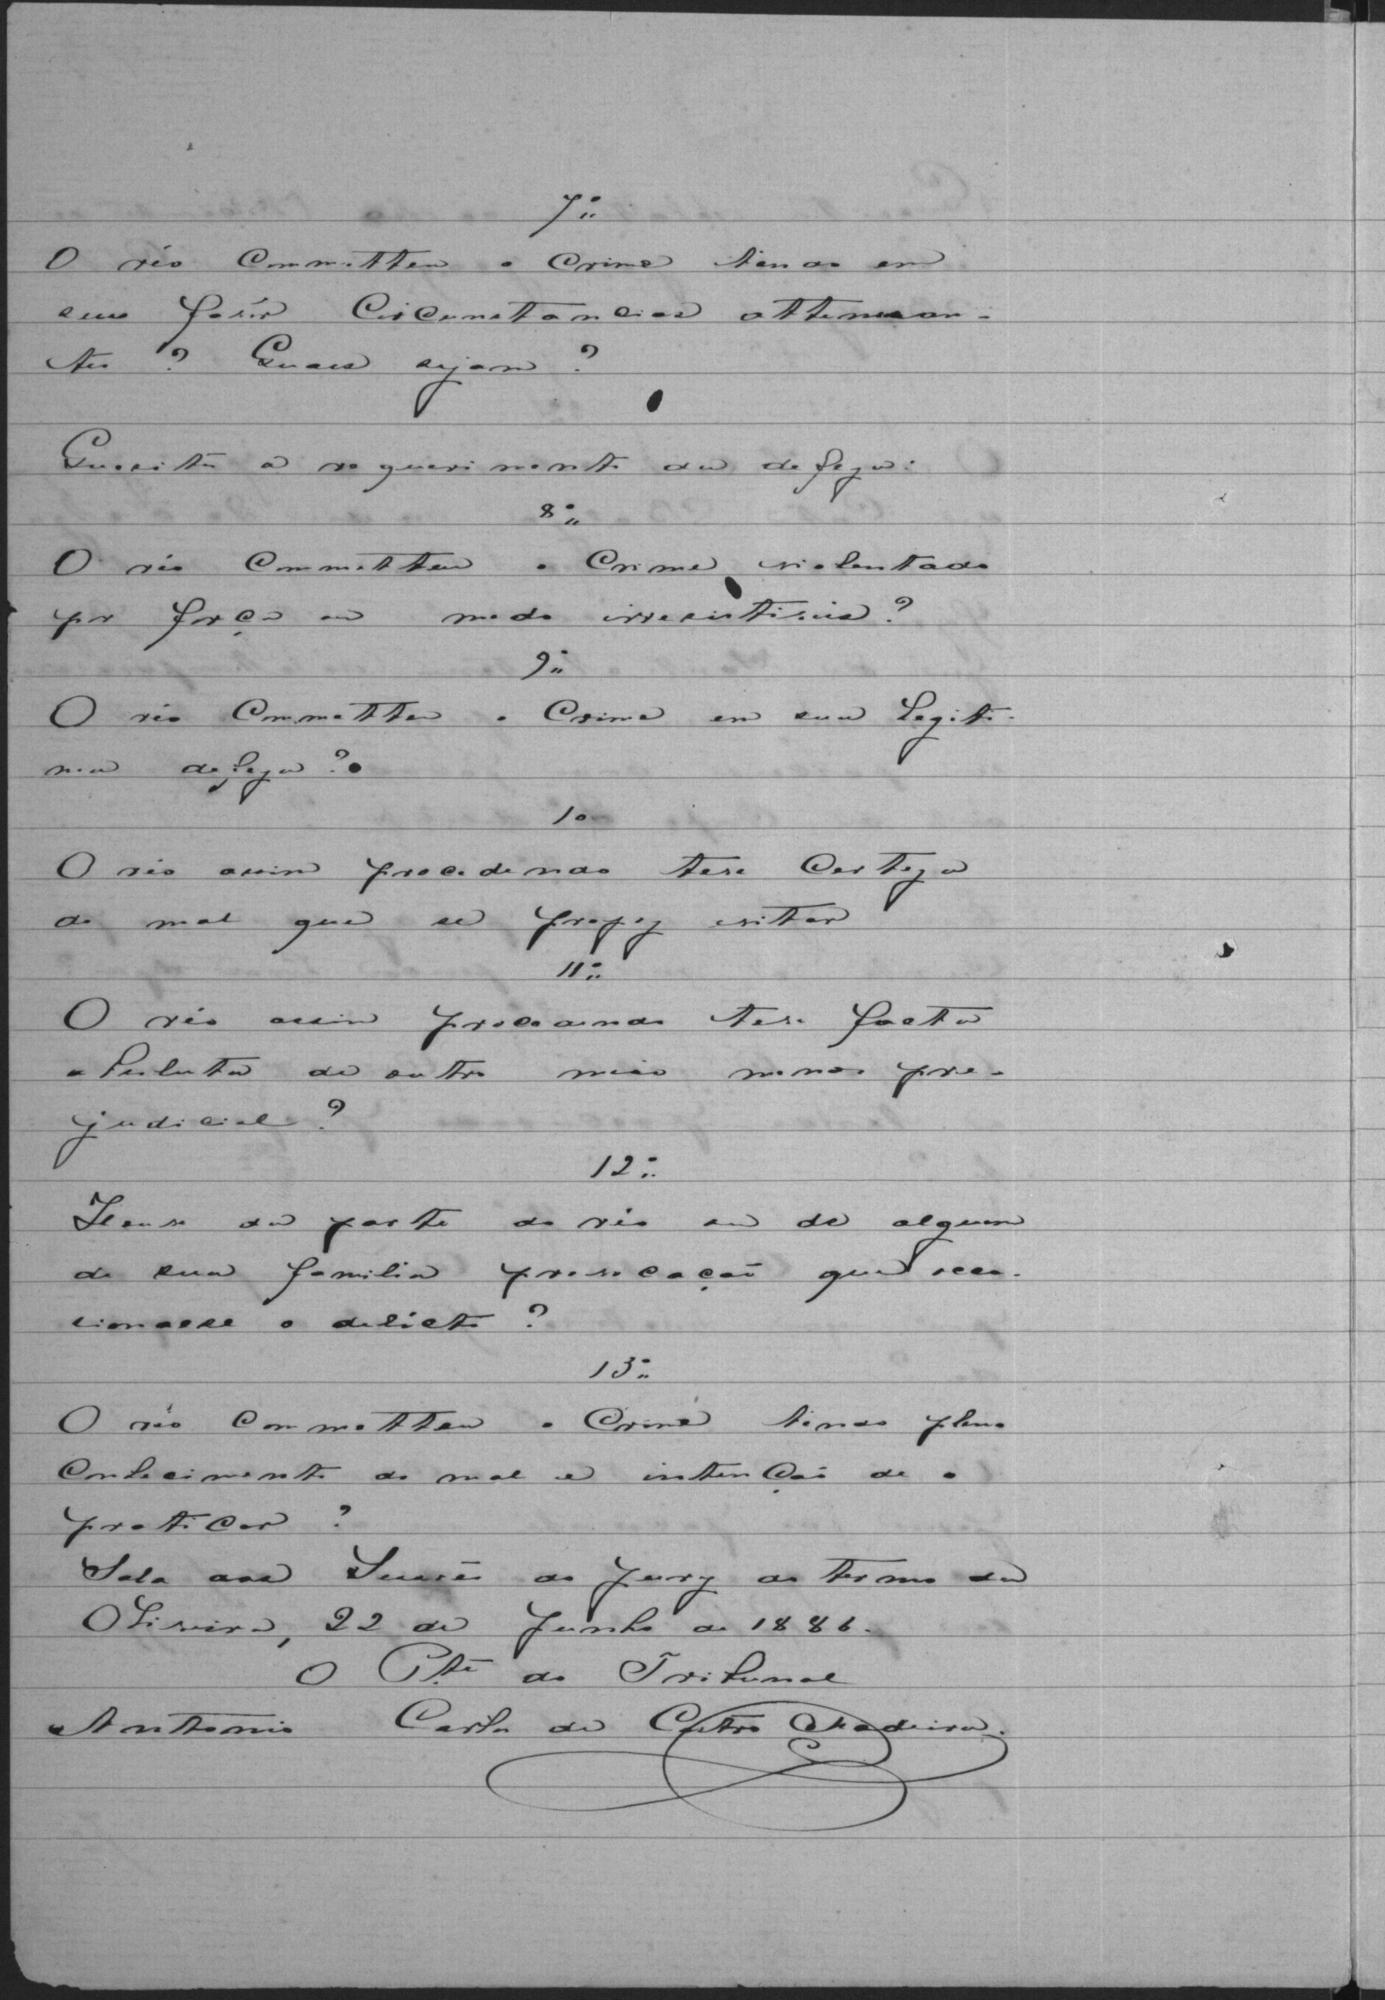 7º
O réo Committeu o Crime tendo em
seu favôr Circunstancias attenuan-
tes ? Quaes sejam ?
Quesitos a requerimento da defeza:
8º
O réo Committeu o Crime violentado
por força ou medo irresistiveis ?
9º
O réo Committeu o Crime em sua legiti-
ma defeza ?
10
O réo assim procedendo teve Certeza
do mal que se propoz evitar
11º
O réo assim procedendo teve falta
absoluta de outro meio menos pre-
judicial ?
12º
Houve da parte do réo ou de alguem
de sua familia provocação que occa-
sionasse o delicto ?
13º
O réo Committeu o Crime tendo pleno
Conhecimento do mal e intenção de o
praticar ?
Sala das Sessões do Jury do termo da
Oliveira, 22 de Junho de 1886.
O Pte do Tribunal
Antonio Carlos de Castro Madeira.